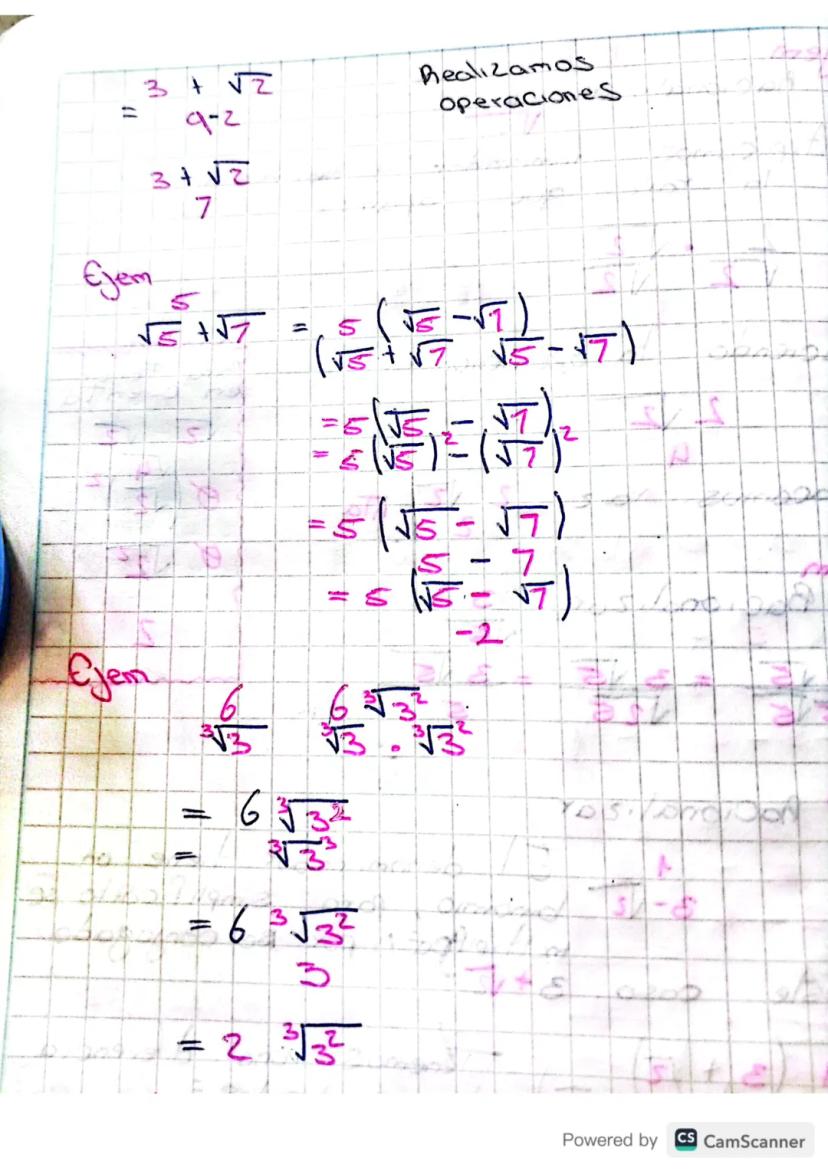 3 + √2
Realizamos
operaciones
=
9-2
3 + √2
7
Ejem
5
√5 + √7 = 5 ( √5 - √7 )
(√5 + √7 √5 - √7 )
= 5 (√5 - √7)
= 5 (√5)² - (√7)²
= 5 (√5 - √7)
5 - 7
= 5 (√5 - √7)
-2
Ejem
6 6 ³√3²
³√3 ³√3 . ³√3²
= 6 ³√3²
= ³√3³
= 6 ³√3²
3
= 2 ³√3²
Powered by CS CamScanner